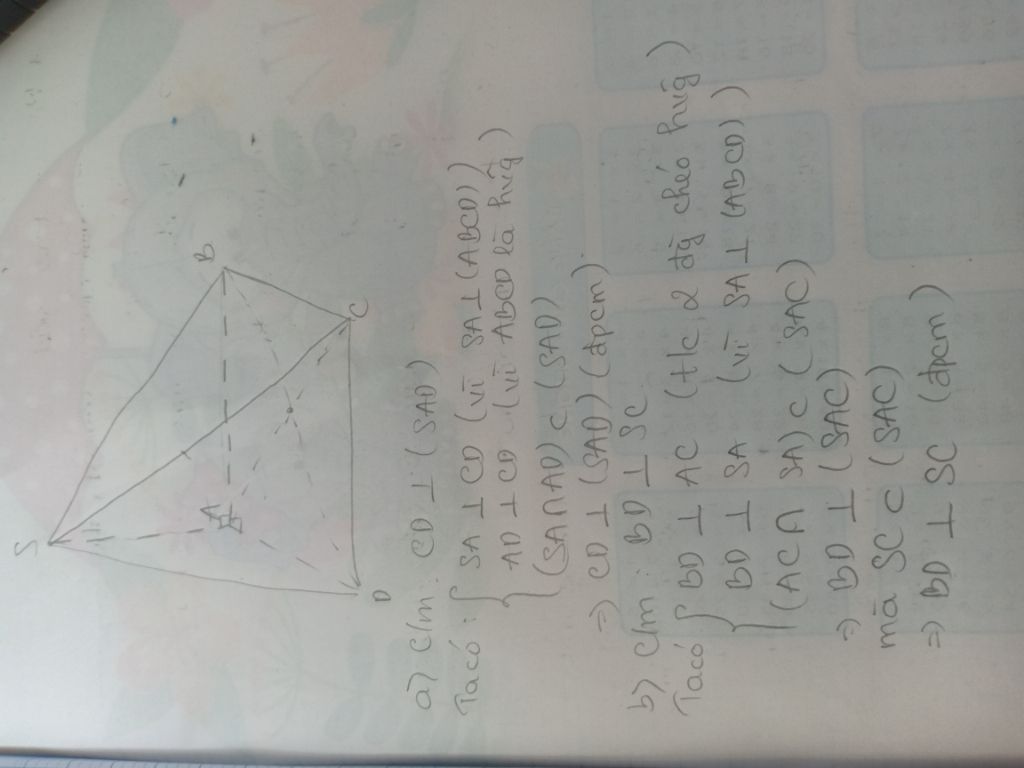 S
B
A
C
D
a) C/m : CD ⊥ (SAD)
Ta có : { SA ⊥ CD (vì SA ⊥ (ABCD))
AD ⊥ CD (vì ABCD là hvg)
(SA ∩ AD) ⊂ (SAD)
=> CD ⊥ (SAD) (đpcm)
b) C/m : BD ⊥ SC
Ta có { BD ⊥ AC (t/c 2 đg chéo hvg)
BD ⊥ SA (vì SA ⊥ (ABCD))
(AC ∩ SA) ⊂ (SAC)
=> BD ⊥ (SAC)
mà SC ⊂ (SAC)
=> BD ⊥ SC (đpcm)